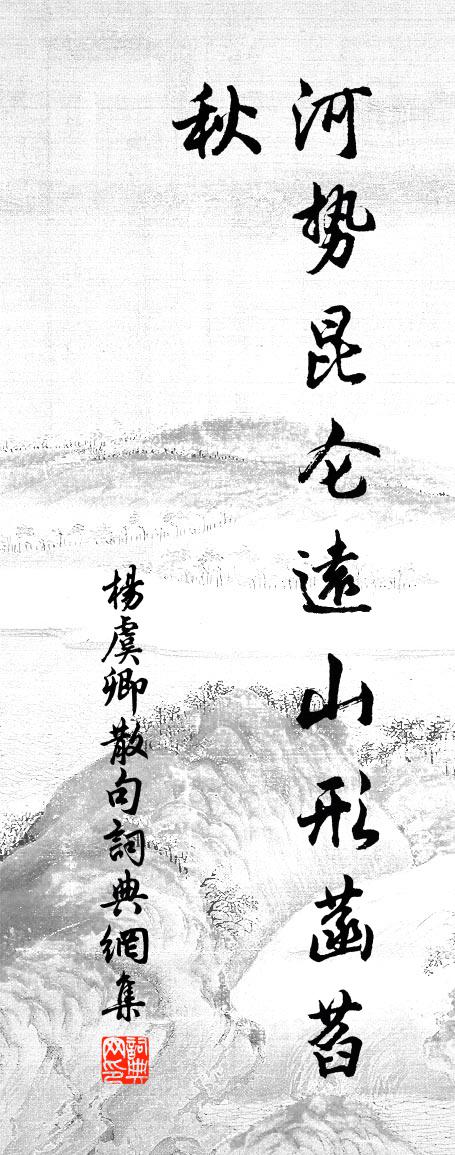 河势昆仑遠山形菡萏
秋
楊虞卿散句詞典網集
詞典
网印